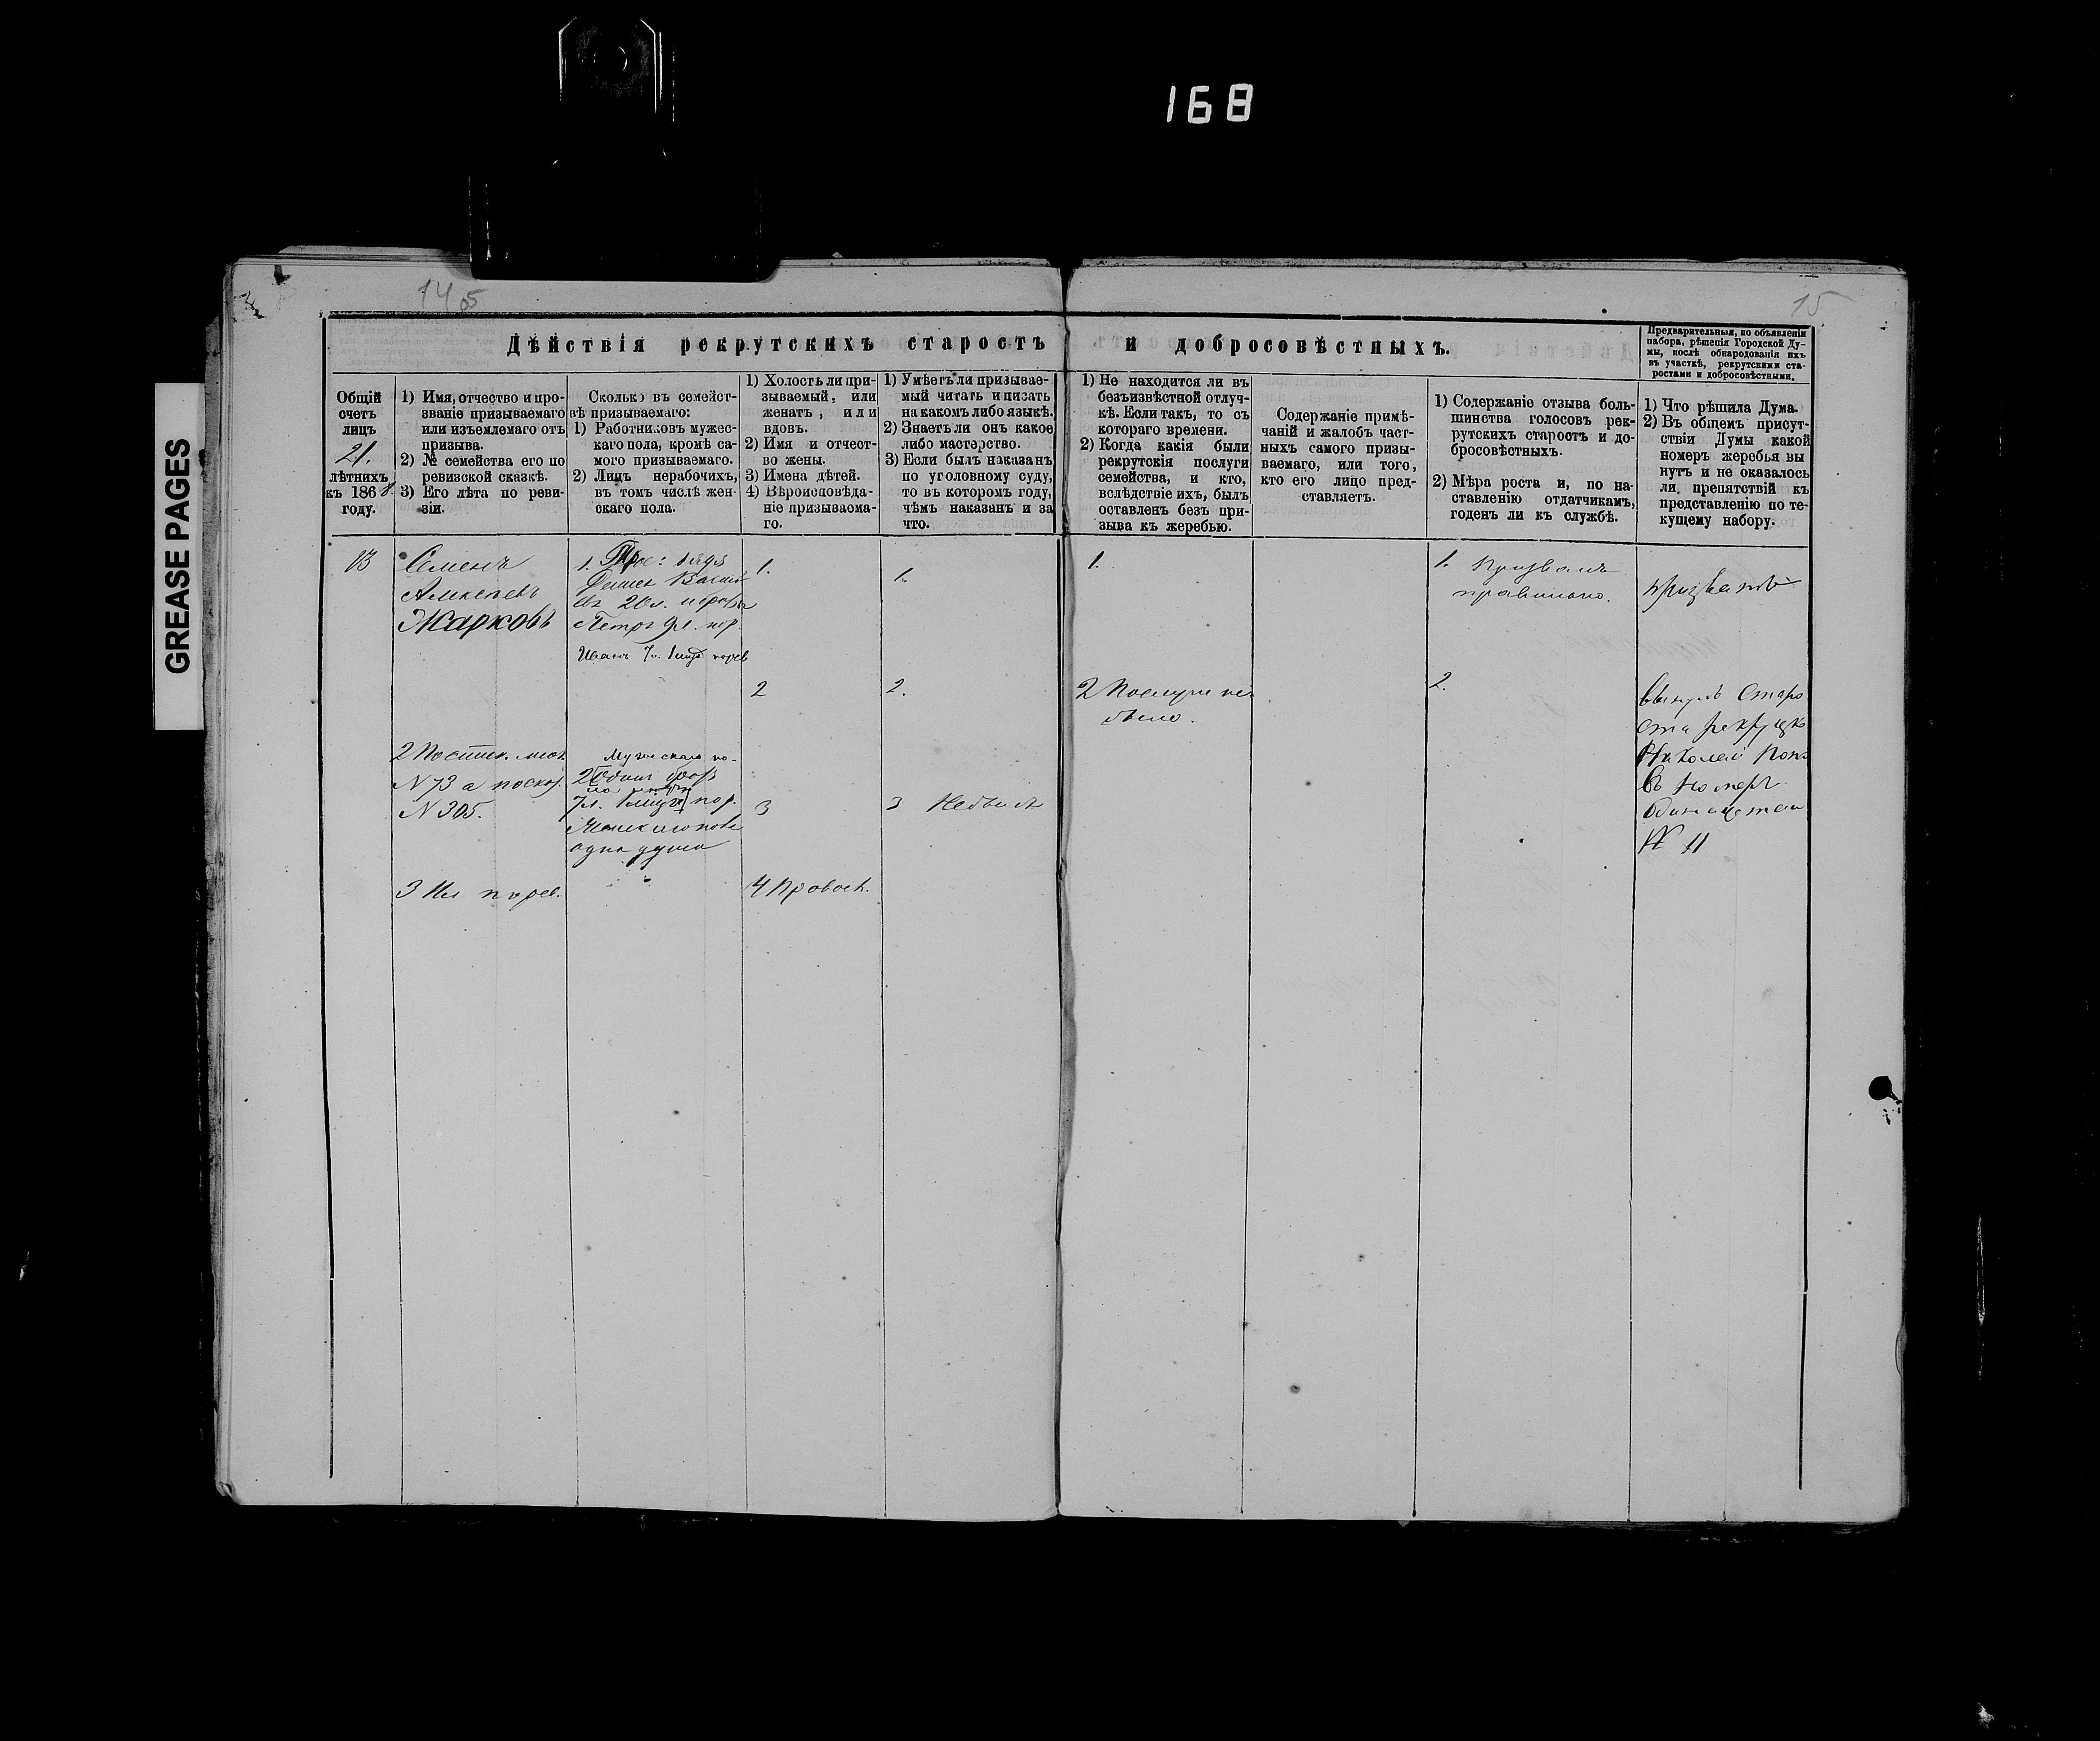 168
GREASE PAGES
15
Дѣйствія рекрутскихъ старостъ и добросовѣстныхъ.
Предварительныя, по объявленіи
набора, рѣшенія Городской Ду-
мы, послѣ обнародованія ихъ
въ участкѣ, рекрутскими ста-
ростами и добросовѣстными.
Общій
счетъ
лицъ
21.
лѣтнихъ
къ 1868
году.
1) Имя, отчество и про-
званіе призываемаго
или изъемлемаго отъ
призыва.
2) № семейства его по
ревизской сказкѣ.
3) Его лѣта по реви-
зіи.
Сколько въ семейст-
вѣ призываемаго:
1) Работниковъ мужес-
каго пола, кромѣ са-
мого призываемаго.
2) Лицъ нерабочихъ,
въ томъ числѣ жен-
скаго пола.
1) Холостъ ли при-
зываемый, или
женатъ, или
вдовъ.
2) Имя и отчест-
во жены.
3) Имена дѣтей.
4) Вѣроисповѣда-
ніе призываема-
го.
1) Умѣетъ ли призывае-
мый читать и писать
на какомъ либо языкѣ.
2) Знаетъ ли онъ какое
либо мастерство.
3) Если былъ наказанъ
по уголовному суду,
то въ которомъ году,
чѣмъ наказанъ и за
что.
1) Не находится ли въ
безъизвѣстной отлуч-
кѣ. Если такъ, то съ
котораго времени.
2) Когда какія были
рекрутскія послуги
семейства, и кто,
вслѣдствіе ихъ, былъ
оставленъ безъ при-
зыва къ жеребью.
Содержаніе примѣ-
чаній и жалобъ част-
ныхъ самого призы-
ваемаго, или того,
кто его лицо пред-
ставляетъ.
1) Содержаніе отзыва боль-
шинства голосовъ рек-
рутскихъ старостъ и до-
бросовѣстныхъ.
2) Мѣра роста и, по на-
ставленію отдатчикамъ,
годенъ ли къ службѣ.
1) Что рѣшила Дума.
2) Въ общемъ присут-
ствіи Думы какой
номеръ жеребья вы
нутъ и не оказалось
ли препятствій къ
представленію по те-
кущему набору.
13
Семенъ
Алексѣевъ
Жарковъ
2
N 73 а
N 305.
3
1.
20 л.
Петръ 9 л. пор.
Иванъ 7 л.
2
7 л. пор.
одна душа
1.
2
3
4 Правосл.
1.
2.
3 Небылъ
1.
2 Послуги не
было.
1. Призванъ
правильно.
2.
призвать
Вынулъ Старо
ста рекрутск
Николай
номеръ
одинадцатый
№ 11